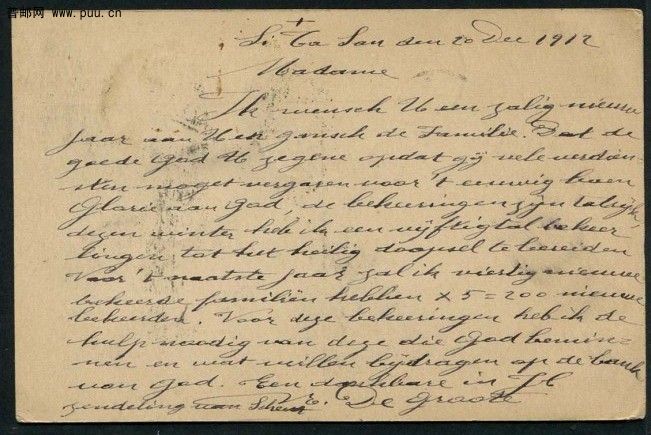 首邮网 www.puu.cn
Si Ta San den 20 Dec 1912
Madame
Ik wensch U een zalig nieuw
jaar aan U en gansch de Familie. Dat de
goede God U zegene opdat gij vele verdien-
sten moget vergaren voor 't eeuwig
Glorie aan God, de bekeeringen zijn talrijk,
dezen winter heb ik een vijftigtal bekeer
lingen tot het heilig doopsel te bereiden
Voor 't naaste jaar zal ik viertig nieuwe
bekeerde familiën hebben x 5 = 200 nieuwe
bekeerden. Voor deze bekeeringen heb ik de
hulp noodig van deze die God bemin=
nen en wat willen bijdragen op de bank
van God. Een dankbare in J C
zendeling van Scheut E. De Groote